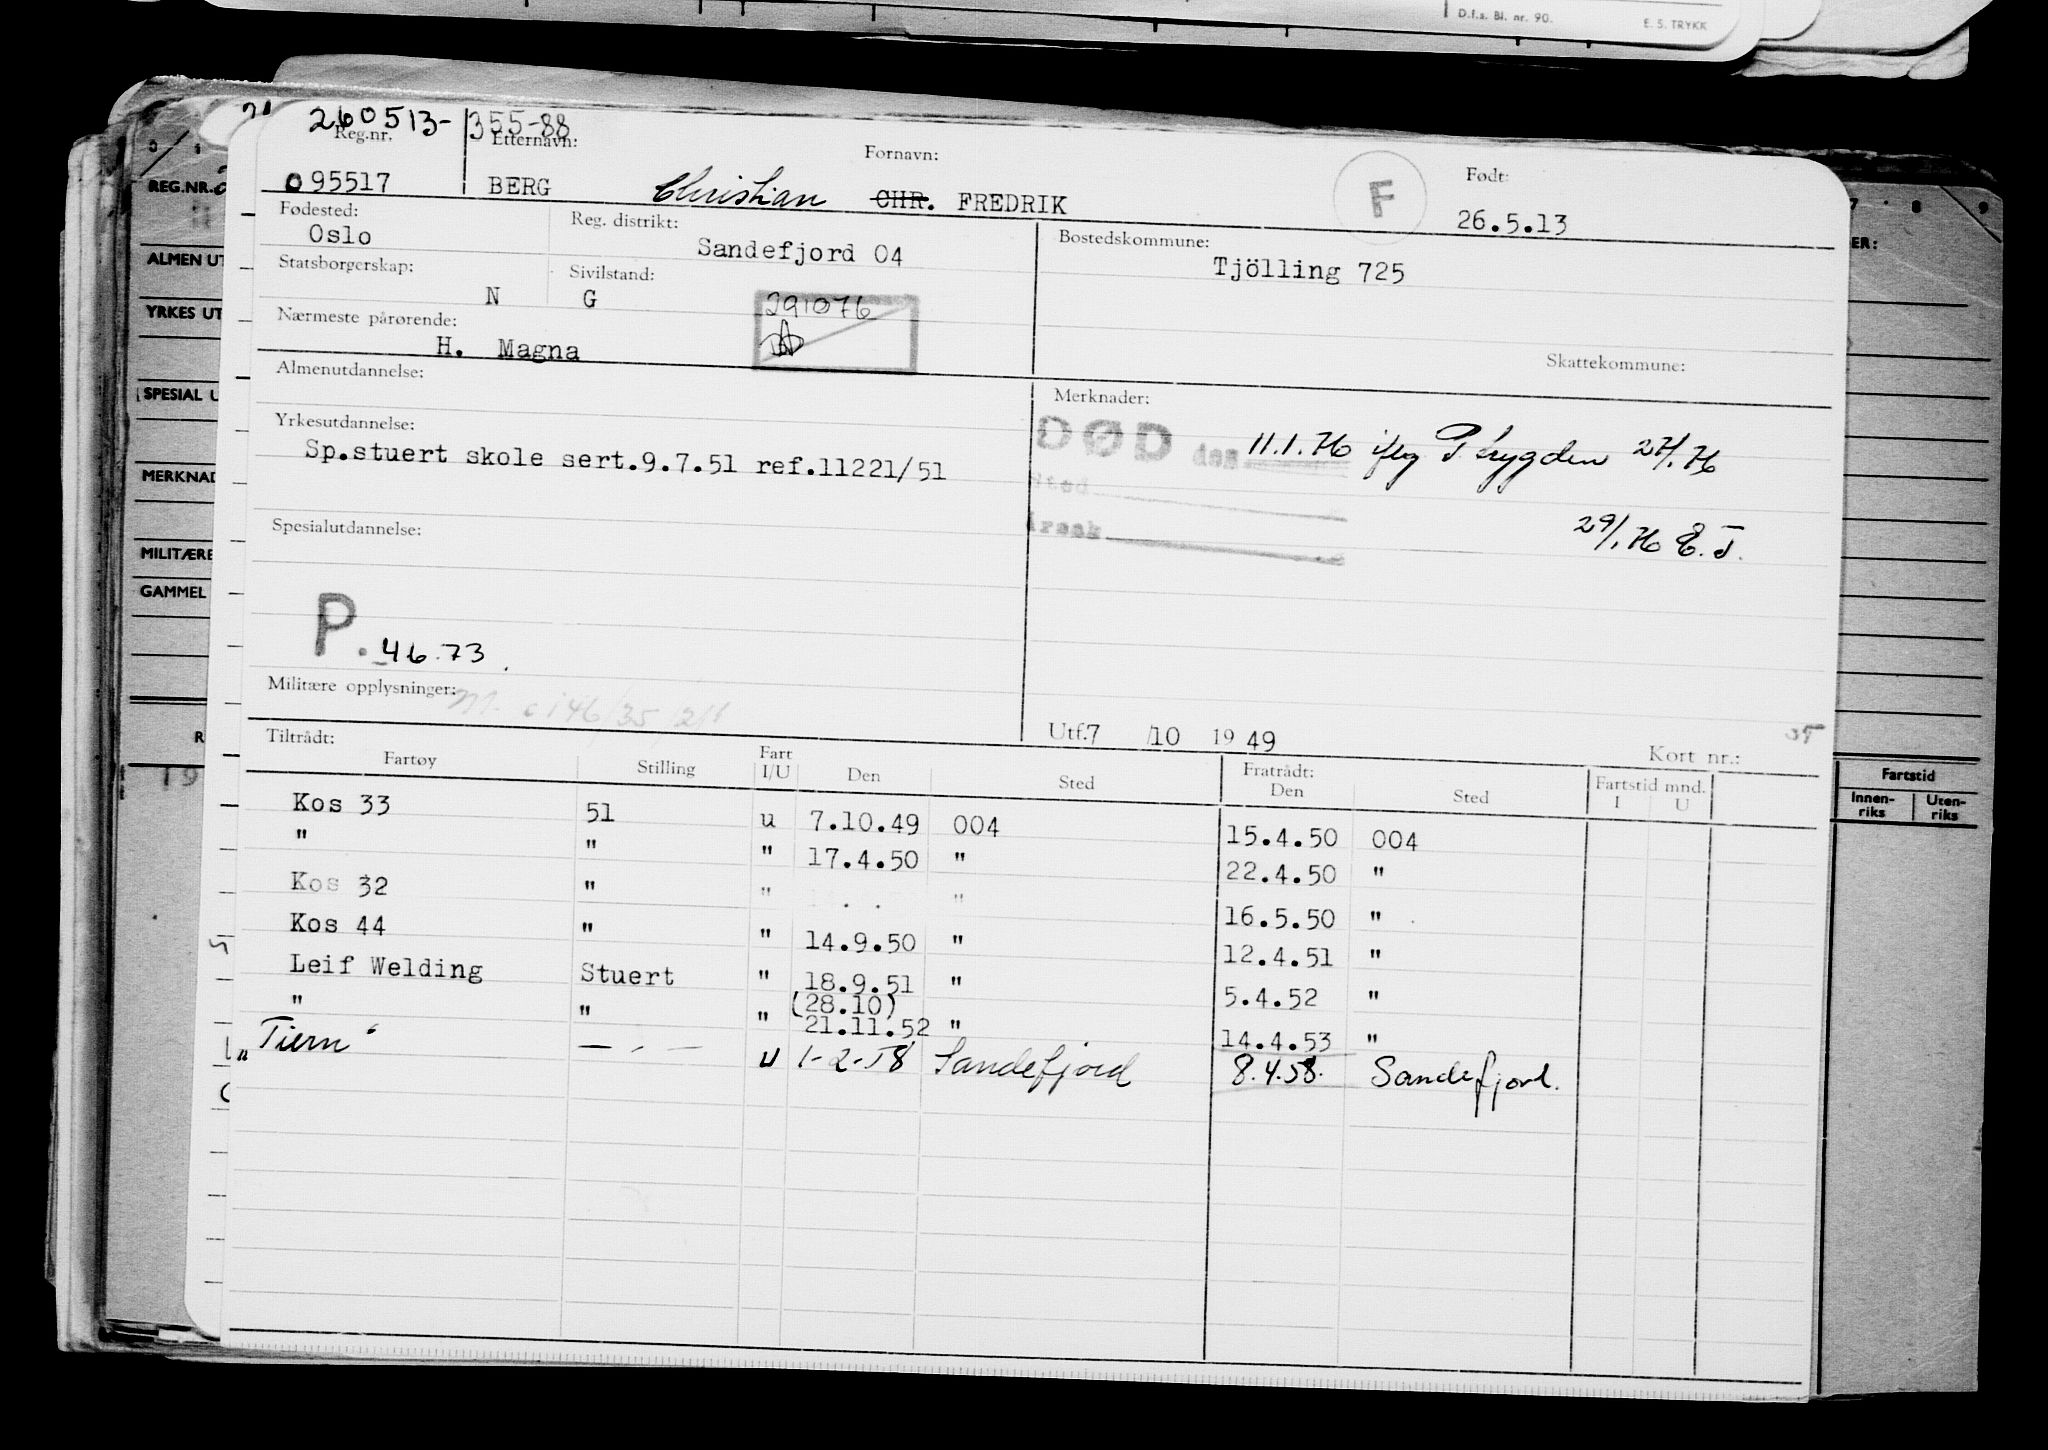 D.f.s. Bl. nr. 90. E. S. TRYKK
260513- 355-88
Reg.nr. Etternavn: Fornavn: Født:
095517 BERG Christian CHR. FREDRIK F 26.5.13
Fødested: Reg. distrikt: Bostedskommune:
Oslo Sandefjord 04 Tjölling 725
Statsborgerskap: Sivilstand:
N G 291076
Nærmeste pårørende:
H. Magna
Skattekommune:
Almenutdannelse: Merknader:
DØD den 11.1.76 iflg P trygden 27/1.76
Yrkesutdannelse:
Sp.stuert skole sert.9.7.51 ref.11221/51
Sted
Årsak 29/1.76 E.T.
Spesialutdannelse:
P. 46.73
Militære opplysninger:
Utf.7 /10 19 49 Kort nr.:
Tiltrådt: Fratrådt: Fartstid mnd.
Fartøy Stilling Fart I/U Den Sted Den Sted I U
Kos 33 51 u 7.10.49 004 15.4.50 004
" " " 17.4.50 " 22.4.50 "
Kos 32 " " . . " 16.5.50 "
Kos 44 " " 14.9.50 " 12.4.51 "
Leif Welding Stuert " 18.9.51 " 5.4.52 "
(28.10)
" " " 21.11.52 " 14.4.53 "
"Tiern" — . — u 1-2-58 Sandefjord 8.4.58. Sandefjord.
REG.NR.
ALMEN UT
YRKES UT
SPESIAL U
MERKNAD
MILITÆRE
GAMMEL
R
19
7 8 9
ER:
Fartstid
Innen-riks Uten-riks